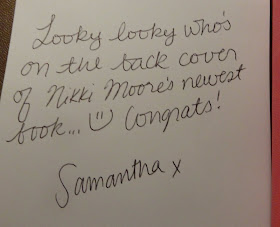 Looky looky who's
on the back cover
of Nikki Moore's newest
book... Congrats!
Samantha x